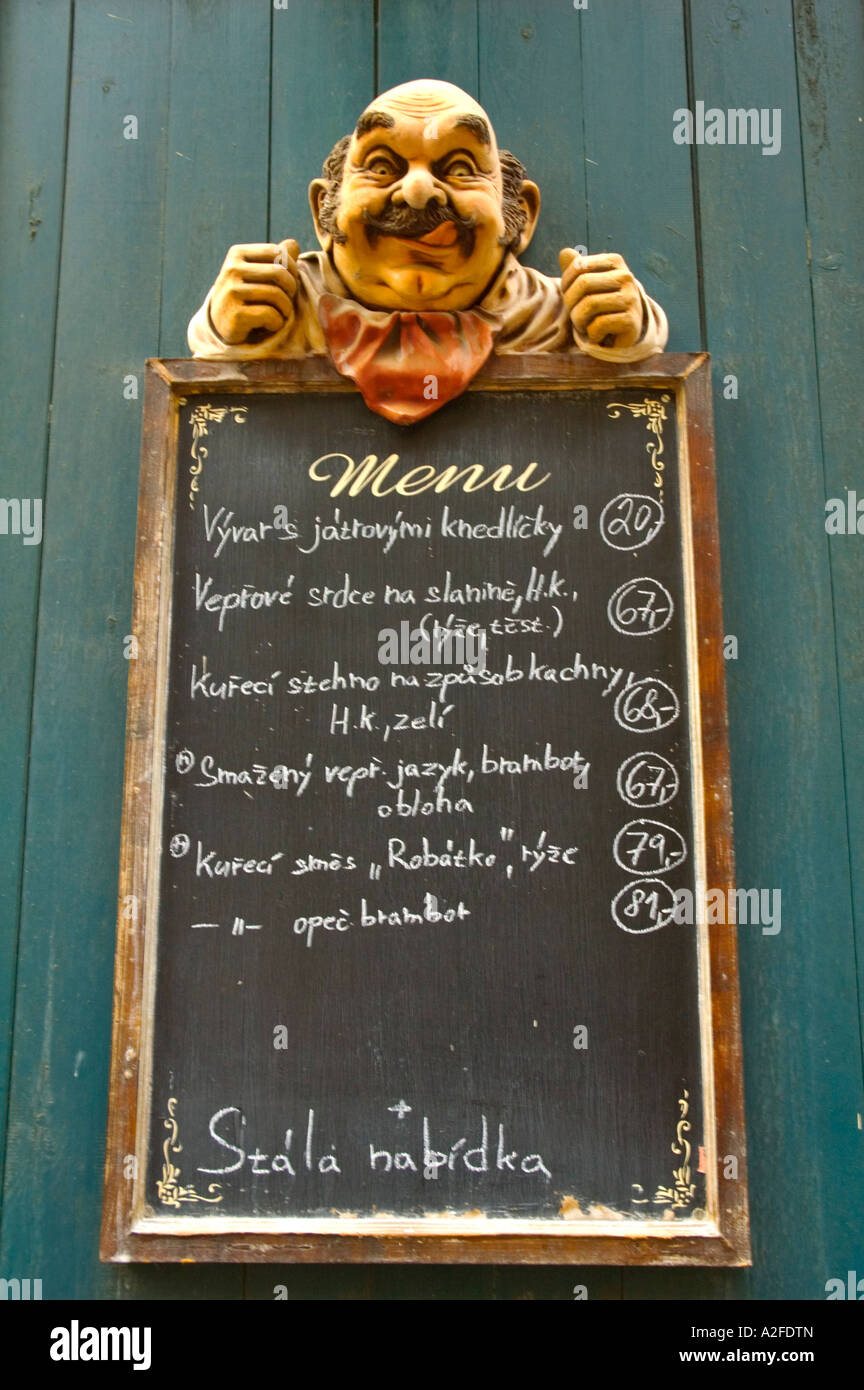 Menu
Vývar s játrovými knedlíčky 20,-
Vepřové srdce na slanině, H.k., 67,-
(rýže, těst.)
Kuřecí stehno na způsob kachny, 68,-
H.k., zelí
Smažený vepř. jazyk, brambory, 67,-
obloha
Kuřecí směs „Robátko", rýže 79,-
— " — opeč. brambor 81,-
+
Stálá nabídka
alamy
A2FDTN
www.alamy.com